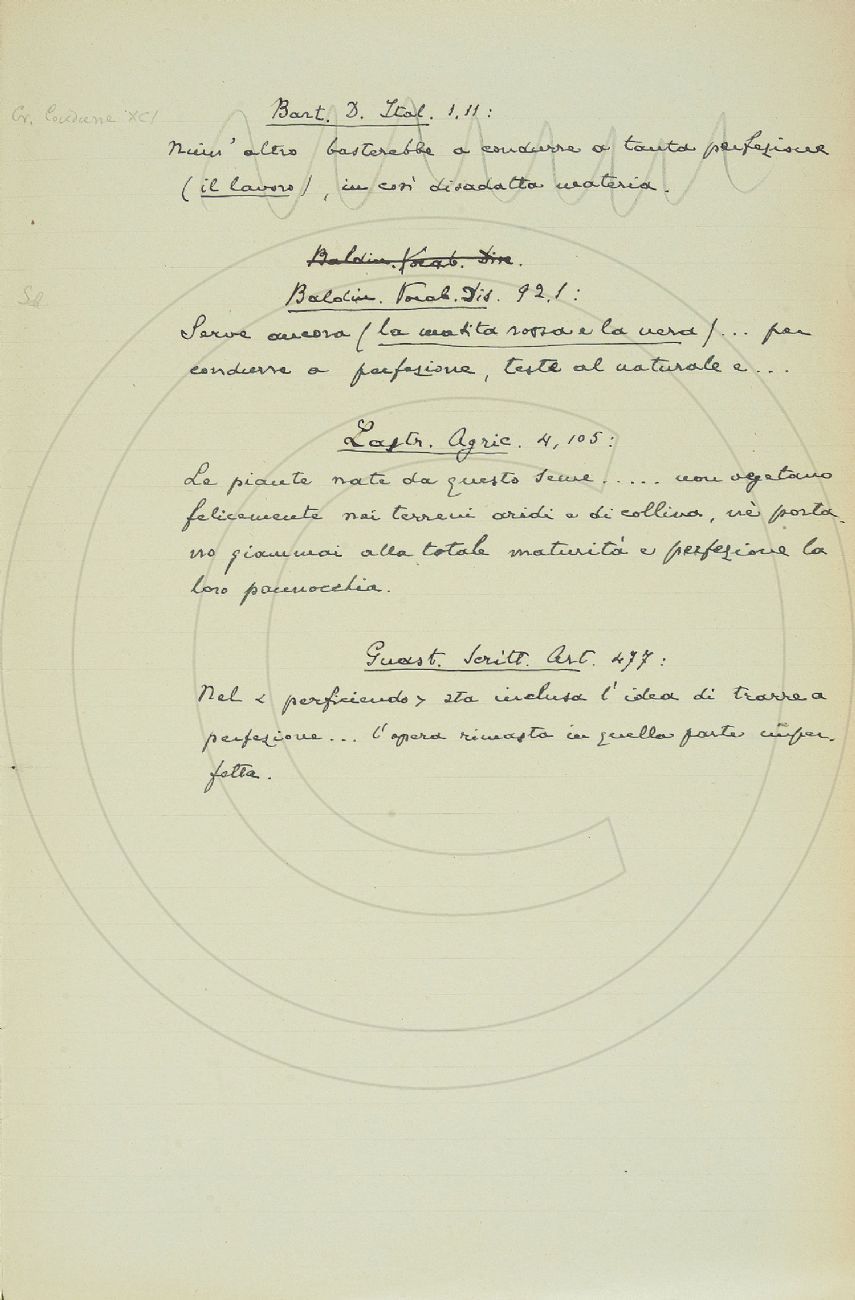 Cr. Condurre XCI
Bart. D. Ital. 1.11:
Niun' altro basterebbe a condurre a tanta perfezione
(il lavoro), in così disadatta materia.
Baldin. Vocab. Dis.
Baldin. Vocab. Dis. 92.1:
Serve ancora (la matita rossa e la nera)... per
condurre a perfezione, teste al naturale e...
Lastr. Agric. 4, 105:
Le piante nate da questo seme..... non vegetano
felicemente nei terreni aridi e di collina, nè porta-
no giammai alla totale maturità e perfezione la
loro pannocchia.
Guast. Scritt. Art. 477:
Nel < perficiendo > sta inclusa l'idea di trarre a
perfezione... l'opera rimasta in quella parte imper-
fetta.